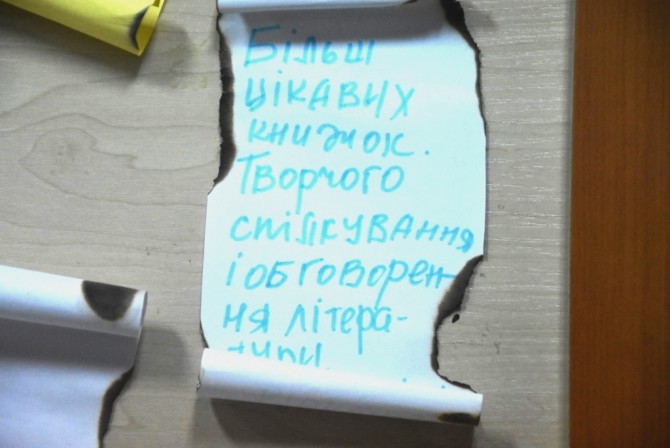 Більш
цікавих
книжок.
Творчого
спілкування
і обговорен-
ня літера-
тури.